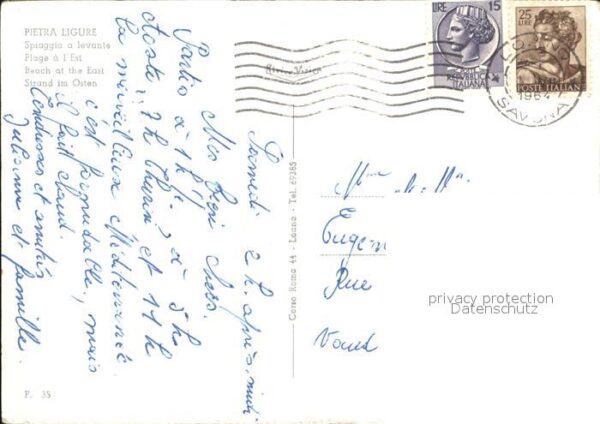 PIETRA LIGURE
Spiaggia a levante
Plage à l'Est
Beach at the East
Strand im Osten
Samedi 2 h. après-midi
Mes biens chers.
Partis à 1 h
à 5 h
Aoste 7 h Turin et 11 h
la merveilleuse Méditerranée
c'est formidable, mais
il fait chaud.
Tendresses et amitiés
Julianne et famille.
P. 35
Corso Roma 44 - Loano - Tel. 69385
LIRE 15
REPUBBLICA
ITALIANA
25
LIRE
POSTE ITALIANE
1964
SAVONA
Mme
Eugen
Rue
Vaud
privacy protection
Datenschutz